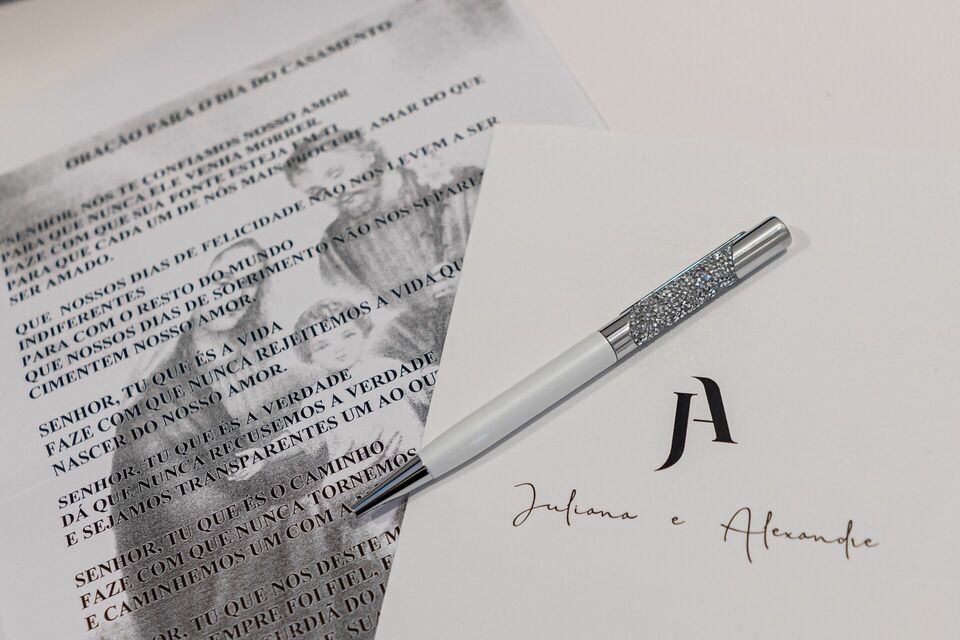 ORAÇÃO PARA O DIA DO CASAMENTO
"SENHOR, NÓS TE CONFIAMOS NOSSO AMOR
PARA QUE NUNCA ELE VENHA MORRER.
FAZE COM QUE SUA FONTE ESTEJA EM TI
PARA QUE CADA UM DE NÓS MAIS PROCURE AMAR DO QUE
SER AMADO.
QUE NOSSOS DIAS DE FELICIDADE NÃO NOS LEVEM A SER
INDIFERENTES
PARA COM O RESTO DO MUNDO
QUE NOSSOS DIAS DE SOFRIMENTO NÃO NOS SEPAREM
CIMENTEM NOSSO AMOR.
SENHOR, TU QUE ÉS A VIDA
FAZE COM QUE NUNCA REJEITEMOS A VIDA QU
NASCER DO NOSSO AMOR.
SENHOR, TU QUE ÉS A VERDADE
DÁ QUE NUNCA RECUSEMOS A VERDADE,
E SEJAMOS TRANSPARENTES UM AO OU
SENHOR, TU QUE ÉS O CAMINHO
FAZE COM QUE NUNCA TORNEMOS
E CAMINHEMOS UM COM A
SENHOR, TU QUE NOS DESTE M
SEMPRE FOI FIEL,
JA
Juliana e Alexandre